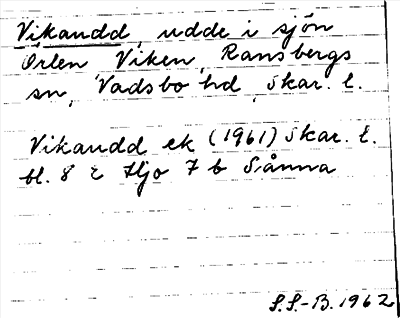 Vikaudd, udde i sjön
Örlen Viken, Ransbergs
sn, Vadsbo hd, Skar. l.
Vikaudd ek (1961) Skar. l.
bl. 8 c Hjo 7 b Sånna
S.S.-B. 1962